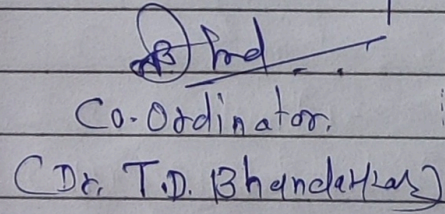 Co-Ordinator.
(Dr. T.D. Bhandarkar)